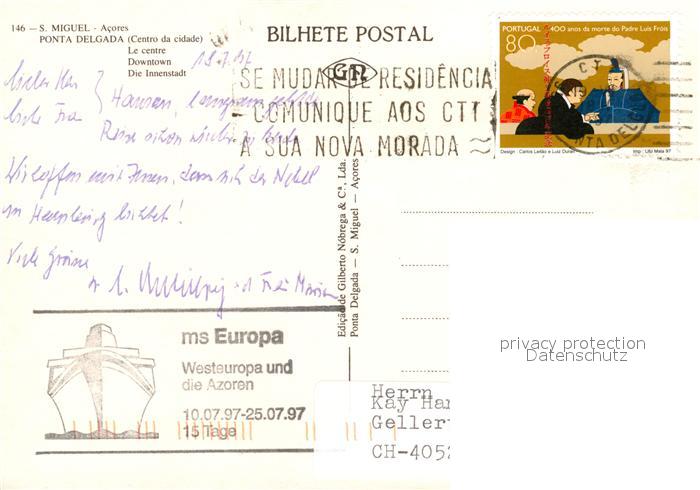 146 — S. MIGUEL - Açores
PONTA DELGADA (Centro da cidade)
Le centre
Downtown
Die Innenstadt
BILHETE POSTAL
GN
SE MUDAR DE RESIDÊNCIA
COMUNIQUE AOS CTT
A SUA NOVA MORADA
PORTUGAL 400 anos da morte do Padre Luís Fróis
80.
Design: Carlos Leitão e Luiz Duran
Imp: Lito Maia 97
CTT
PONTA DELGADA
Lieber Herr
liebe Frau
Hansen, langsam
Reise schon wieder zu Ende
Wir hoffen mit Ihnen, dass sich der Nebel
in Hamburg lichtet!
Viele Grüsse
Edição de Gilberto Nóbrega & Cª., Lda.
Ponta Delgada — S. Miguel — Açores
ms Europa
Westeuropa und
die Azoren
10.07.97-25.07.97
15 Tage
privacy protection
Datenschutz
Herrn
Kay Han
Geller
CH-4052